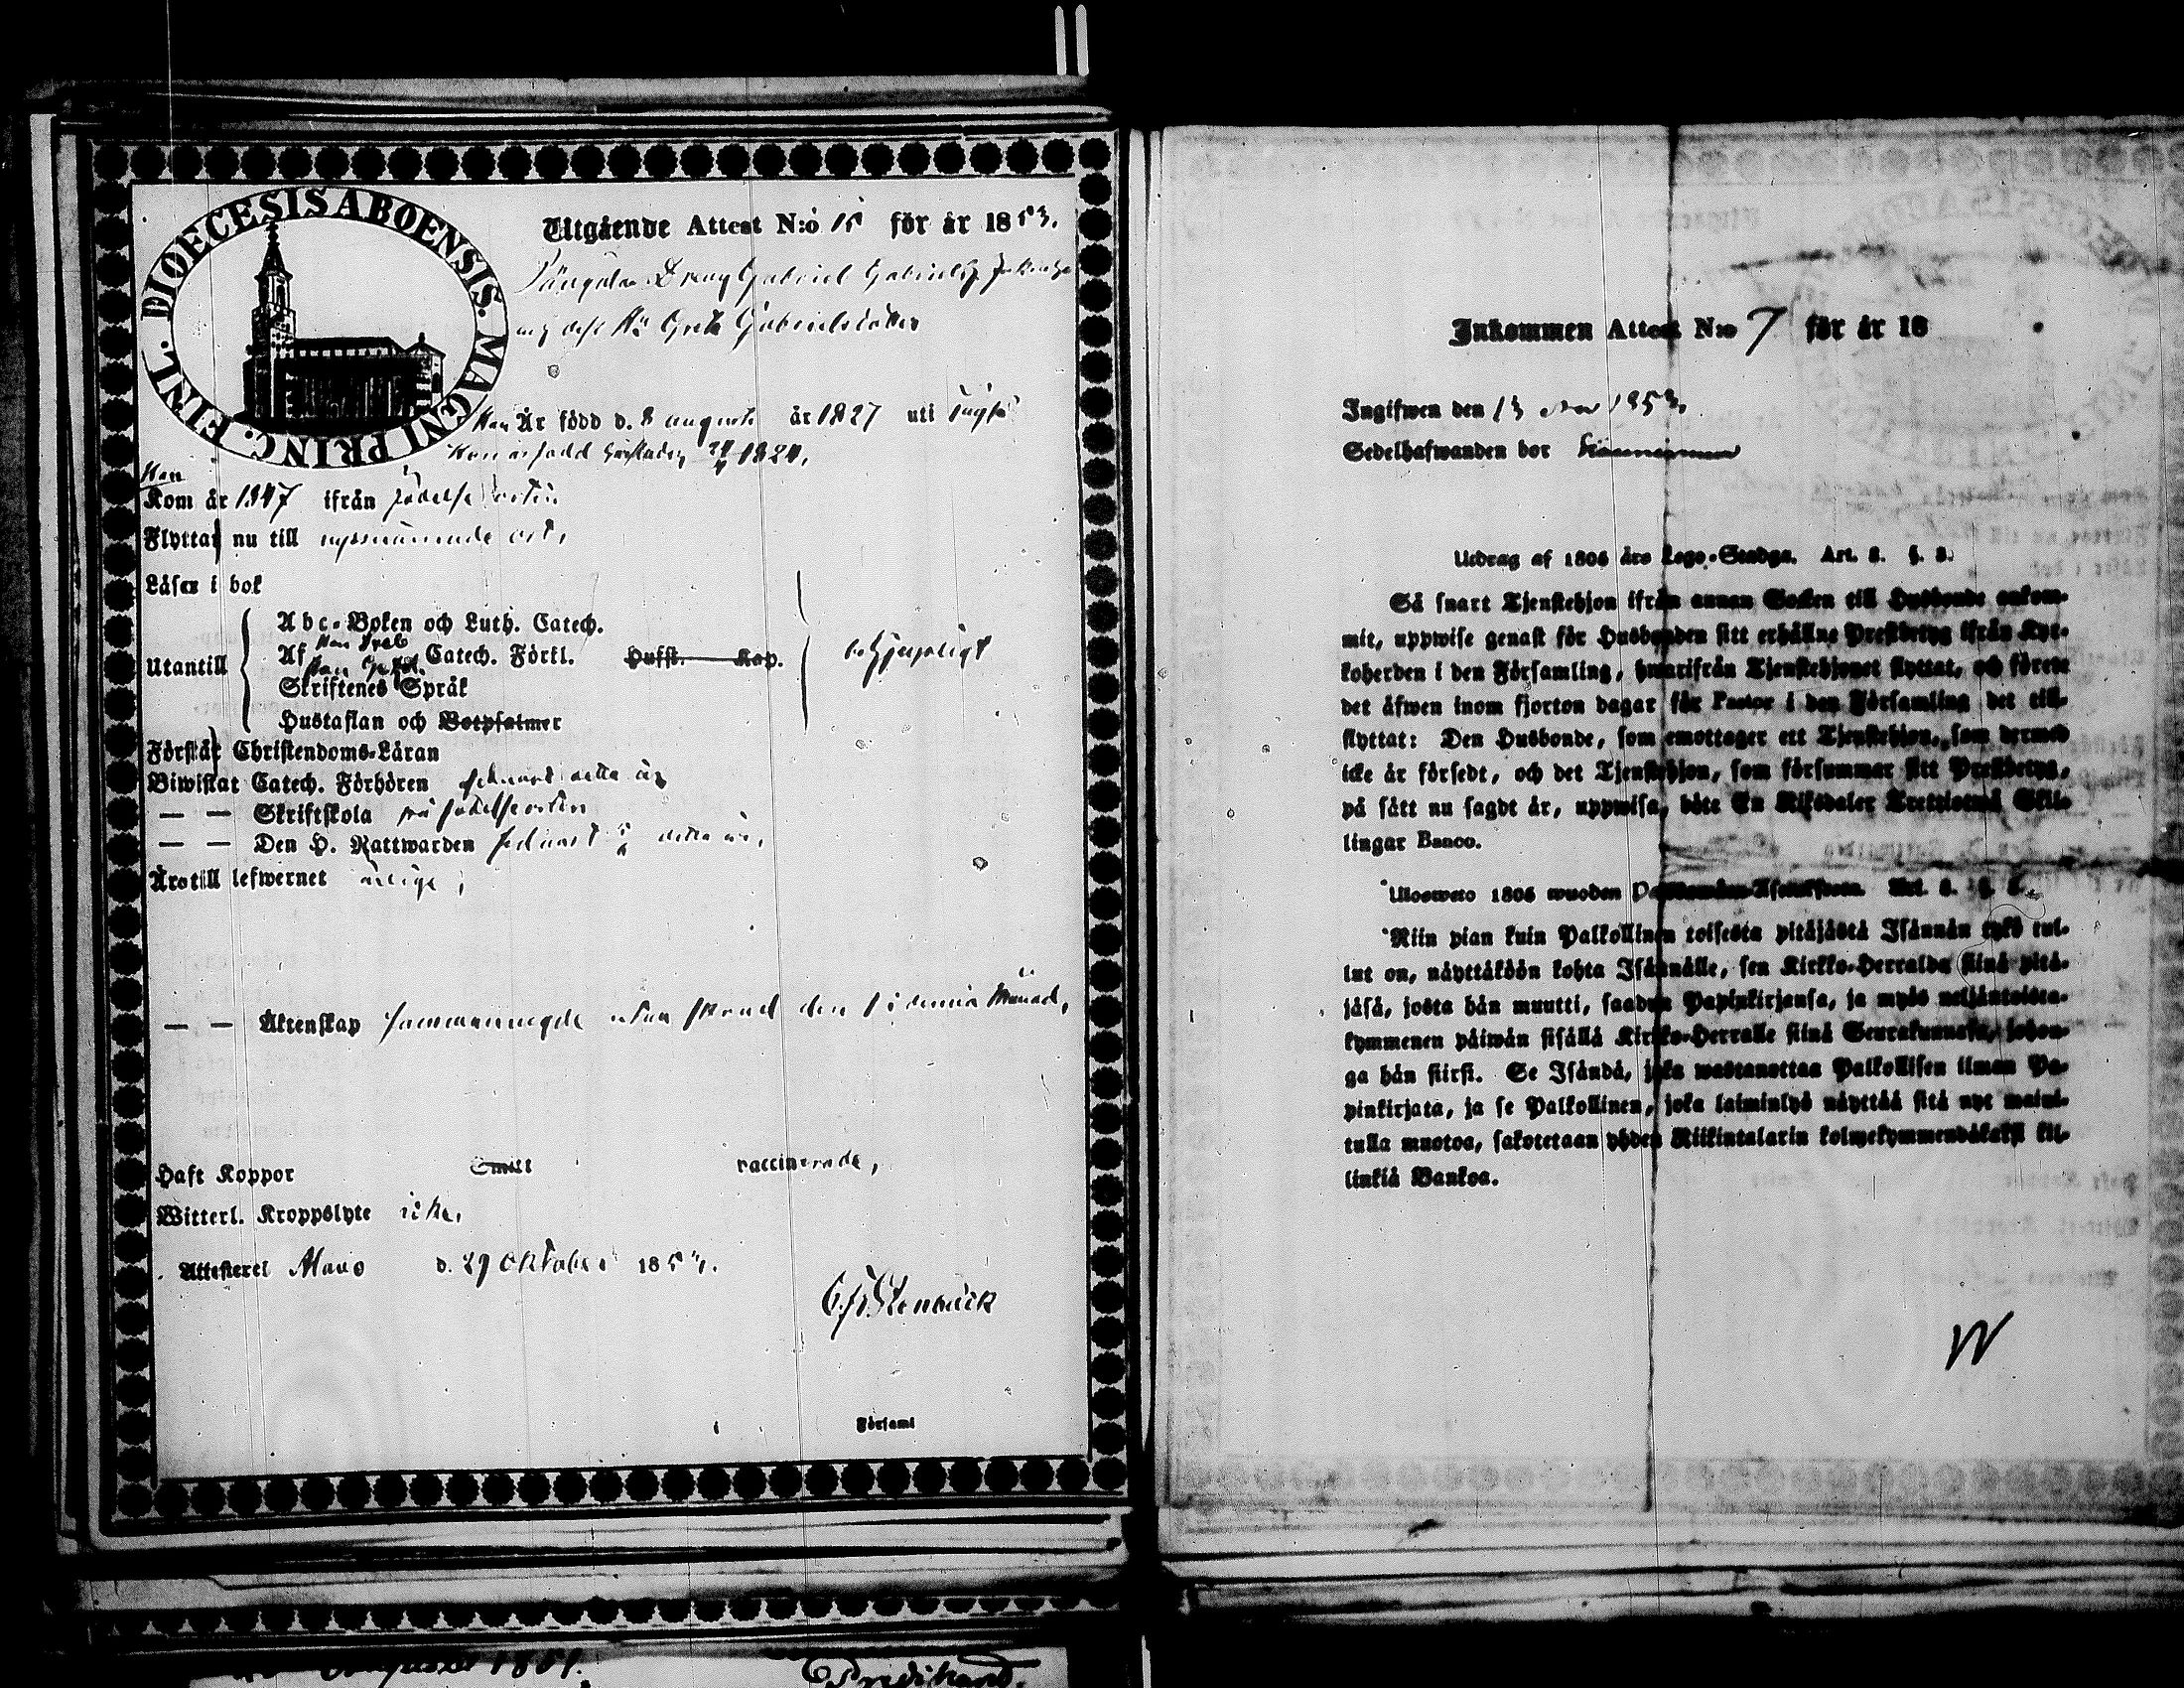 DIOECESIS ABOENSIS. MAGNI PRINC. FINL.
Utgående Attest N:o 15 för år 1853.
Dräng Gabriel Gabrielss.
och dess Hu Greta Gabrielsdotter
Han Är född d. 8 augusti år 1827 uti
Hon är född 1824.
Han
Kom år 1847 ifrån födelse orten.
Flyttar nu till nyssnämnde ort.
Läser i bok
Abc-Boken och Luth. Catech.
Utantill
Af Catech. Förkl. Hufst. Kap.
Skriftenes Språk
Hustaflan och Botpsalmer
Förstår Christendoms-Läran
Biwistat Catech. Förhören sednast detta år
— — Skriftskola på födelseorten
— — Den H. Nattwarden sednast detta år.
Äro till lefwernet ärlige;
— — Äktenskap sammanvigde den i denna Månad.
Haft Koppor Smitt vaccinerade,
Witterl. Kroppslyte icke.
Attesterel Alavo d. 29 Oktober 1853.
Stenbäck
Församl
1851.
Inkommen Attest N:o 7 för år 18
Ingifwen den 13 1853.
Sedelhafwanden bor
Utdrag af 1805 års Lego-Stadga. Art. 8. §. 8.
Så snart Tjenstehjon ifrån annan Socken till Husbonde ankom-
mit, uppwise genast för Husbonden sitt erhållne Prestbetyg ifrån Kyr-
koherden i den Församling, hwarifrån Tjenstehjonet flyttat, och förete
det äfwen inom fjorton dagar för Pastor i den Församling det till-
flyttat: Den Husbonde, som emottager ett Tjenstehjon, som dermed
icke är försedt, och det Tjenstehjon, som försummar sitt Prestbetyg,
på sätt nu sagdt är, uppwisa, böte En Riksdaler Tretziotwå Skil-
lingar Banco.
Ulosweto 1805 wuoden Art. 8. §.
Niin pian kuin Palkollinen toisesta pitäjästä Isännän tykö tul-
lut on, näyttäköön kohta Isännälle, sen Kirkko-Herralda siinä pitä-
jäsä, josta hän muutti, saadun Papinkirjansa, ja myös neljäntoista-
kymmenen päiwän sisällä Kirkko-Herralle siinä Seurakunnasa, johon-
ga hän siirsi. Se Isändä, joka wastanottaa Palkollisen ilman Pa-
pinkirjata, ja se Palkollinen, joka laiminlyö näyttää sitä nyt maini-
tulla muotoa, sakotetaan yhden Riikintalarin kolmekymmendäkaksi kil-
linkiä Bankoa.
W